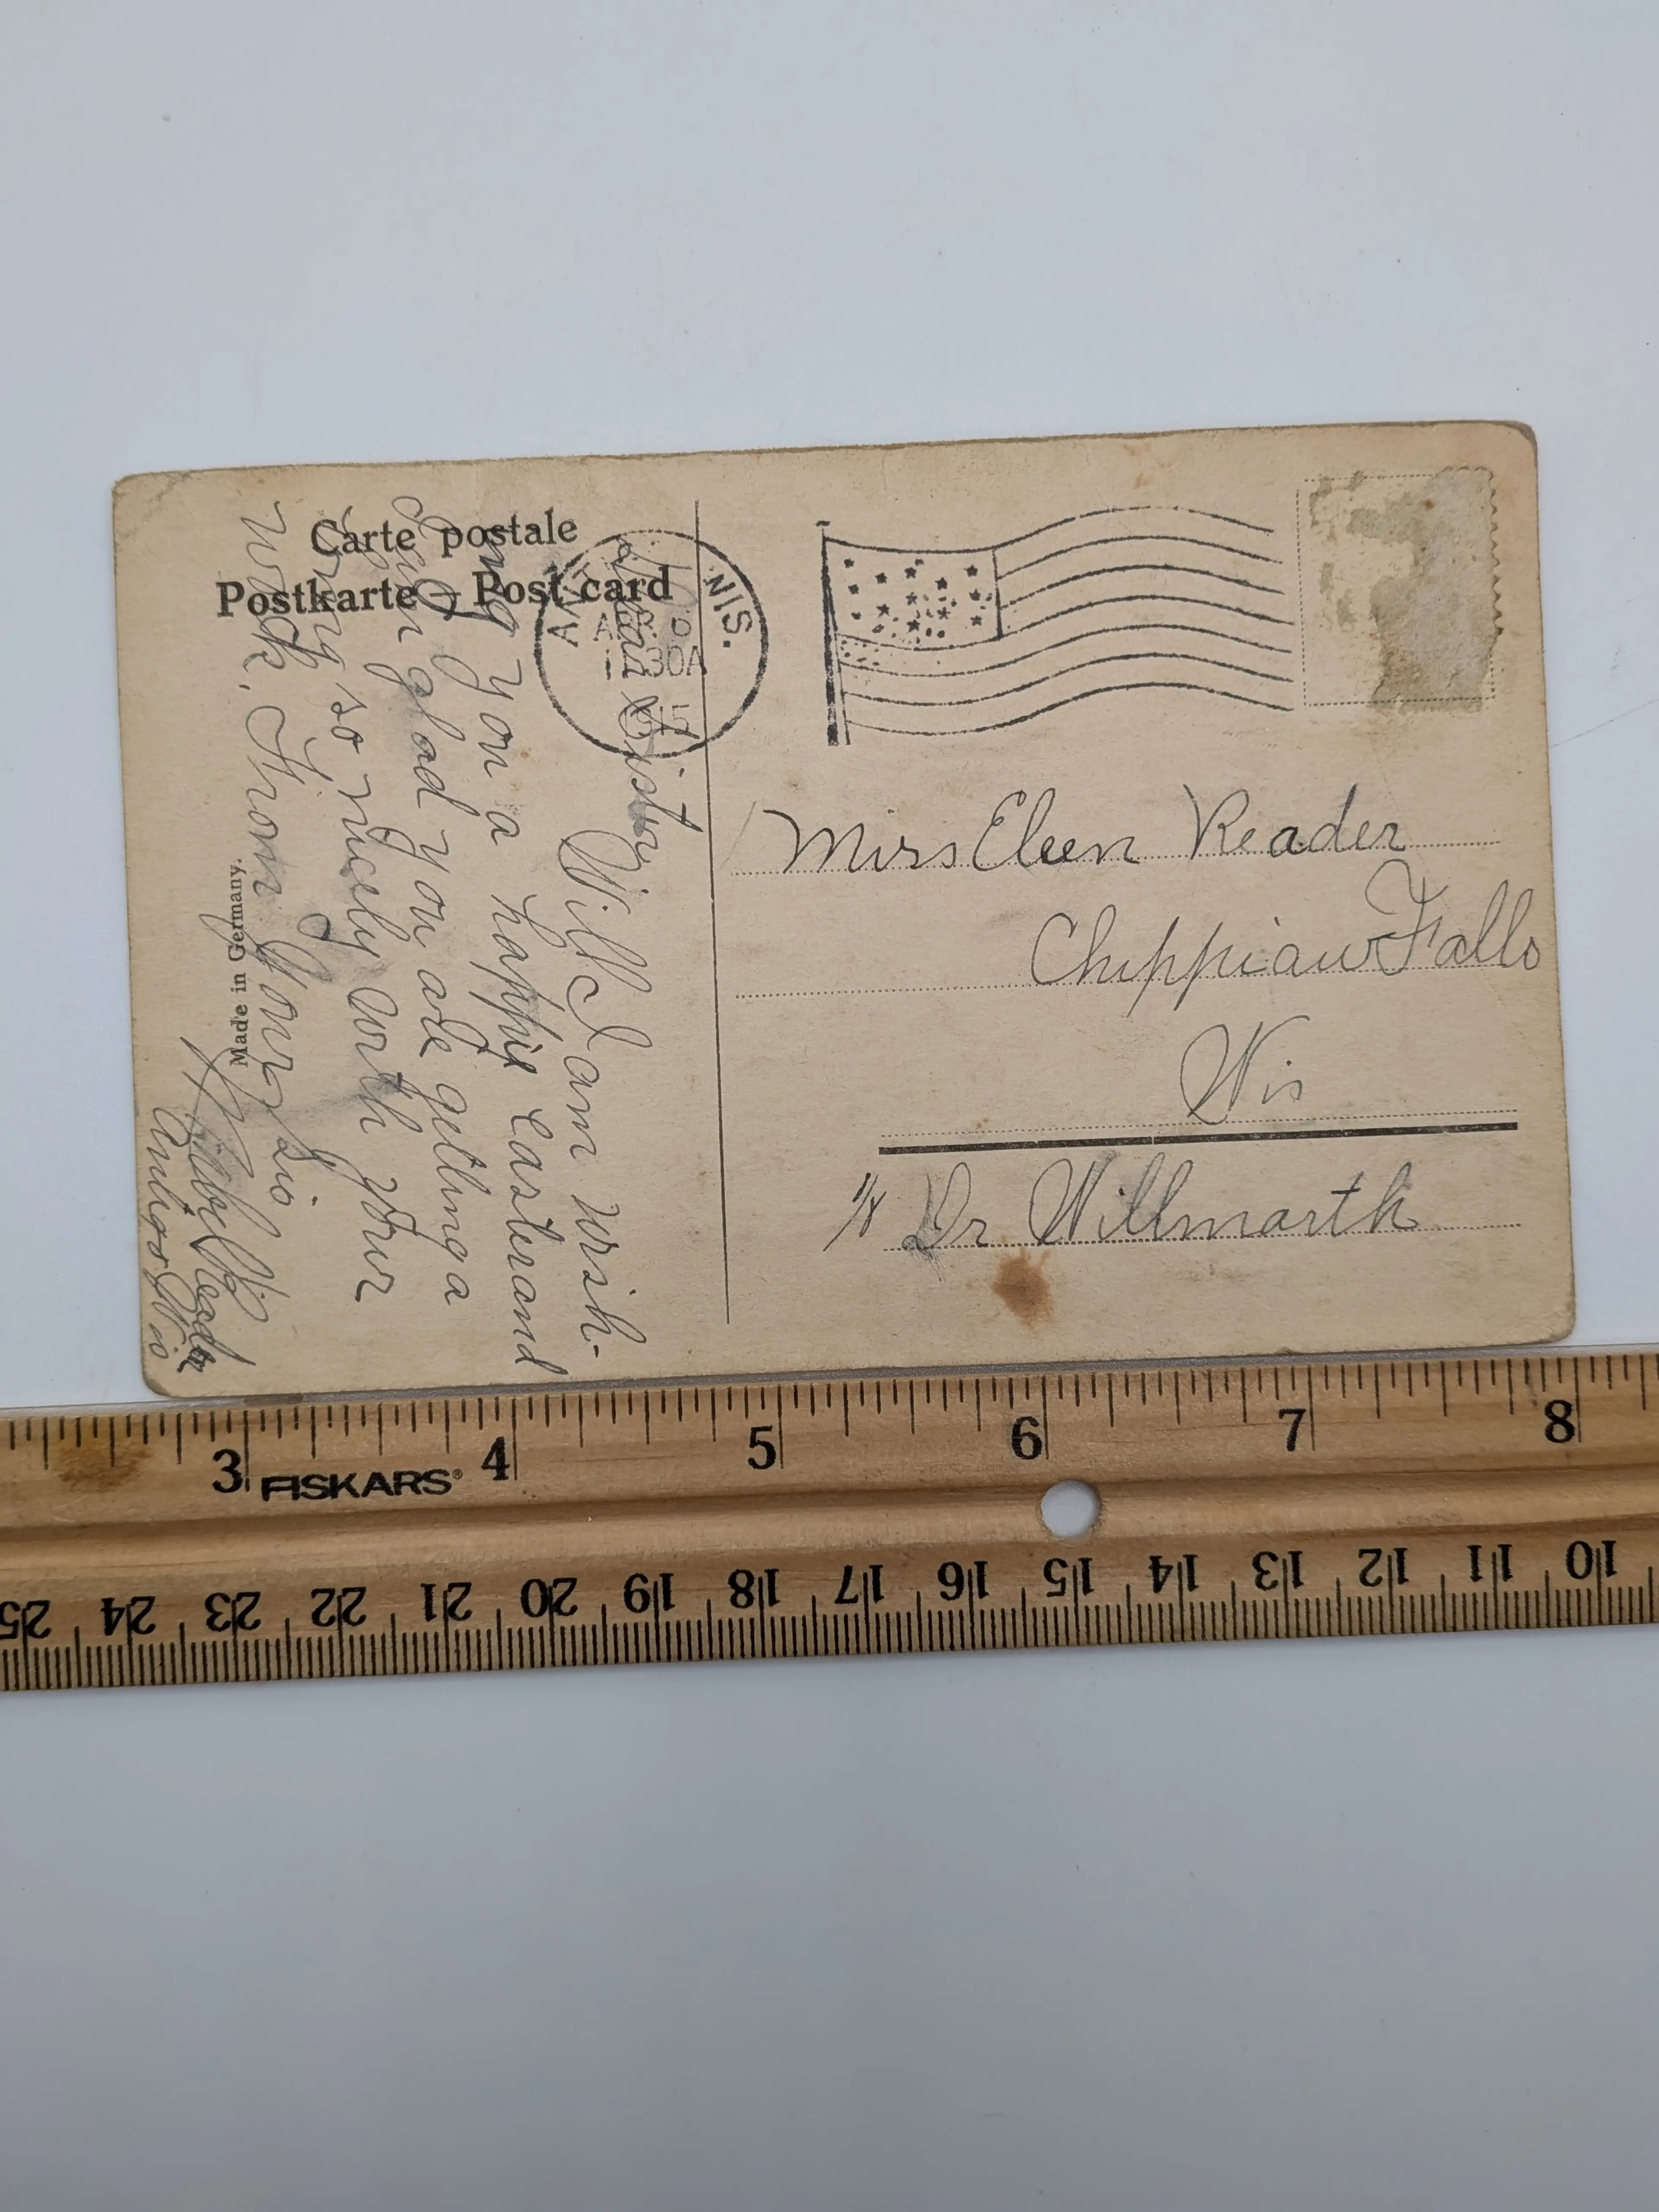 Carte postale
Postkarte – Post card
WIS.
30A
Miss Eleen Reader
Chippiaw Falls
Wis
Dr Willmarth
Dear Sister
Will I am wish-
ing you a happy Easter and
I am glad you are getting a
long so nicely with your
work. From Your sis
Reader
Antigo Wis
Made in Germany.
3 4 5 6 7 8
FISKARS®
25 24 23 22 21 20 19 18 17 16 15 14 13 12 11 10